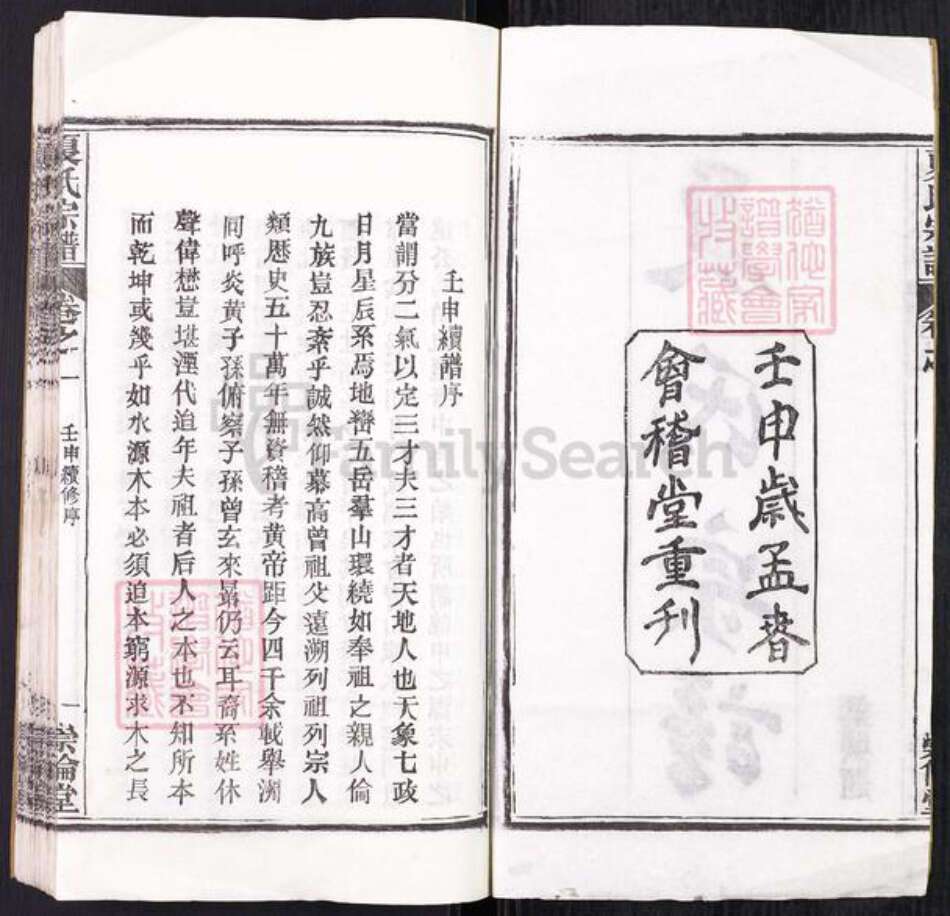 壬申歲孟春
會稽堂重刊
壬申續譜序
當謂分二氣以定三才夫三才者天地人也天象七政
日月星辰系焉地濟五岳羣山環繞如奉祖之親人倫
九族豈忍紊乎誠然仰慕高曾祖父遠溯列祖列宗人
類歷史五十萬年無資稽考黄帝距今四千余載舉溯
同呼炎黄子孫俯察子孫曾玄來晜仍云耳裔系姓休
聲偉懋豈堪湮代迫年夫祖者后人之本也不知所本
而乾坤或幾乎如水源木本必須追本窮源求木之長
夏氏宗譜
卷之一
壬申續修序
一
崇倫堂
譜學會
收藏
FamilySearch